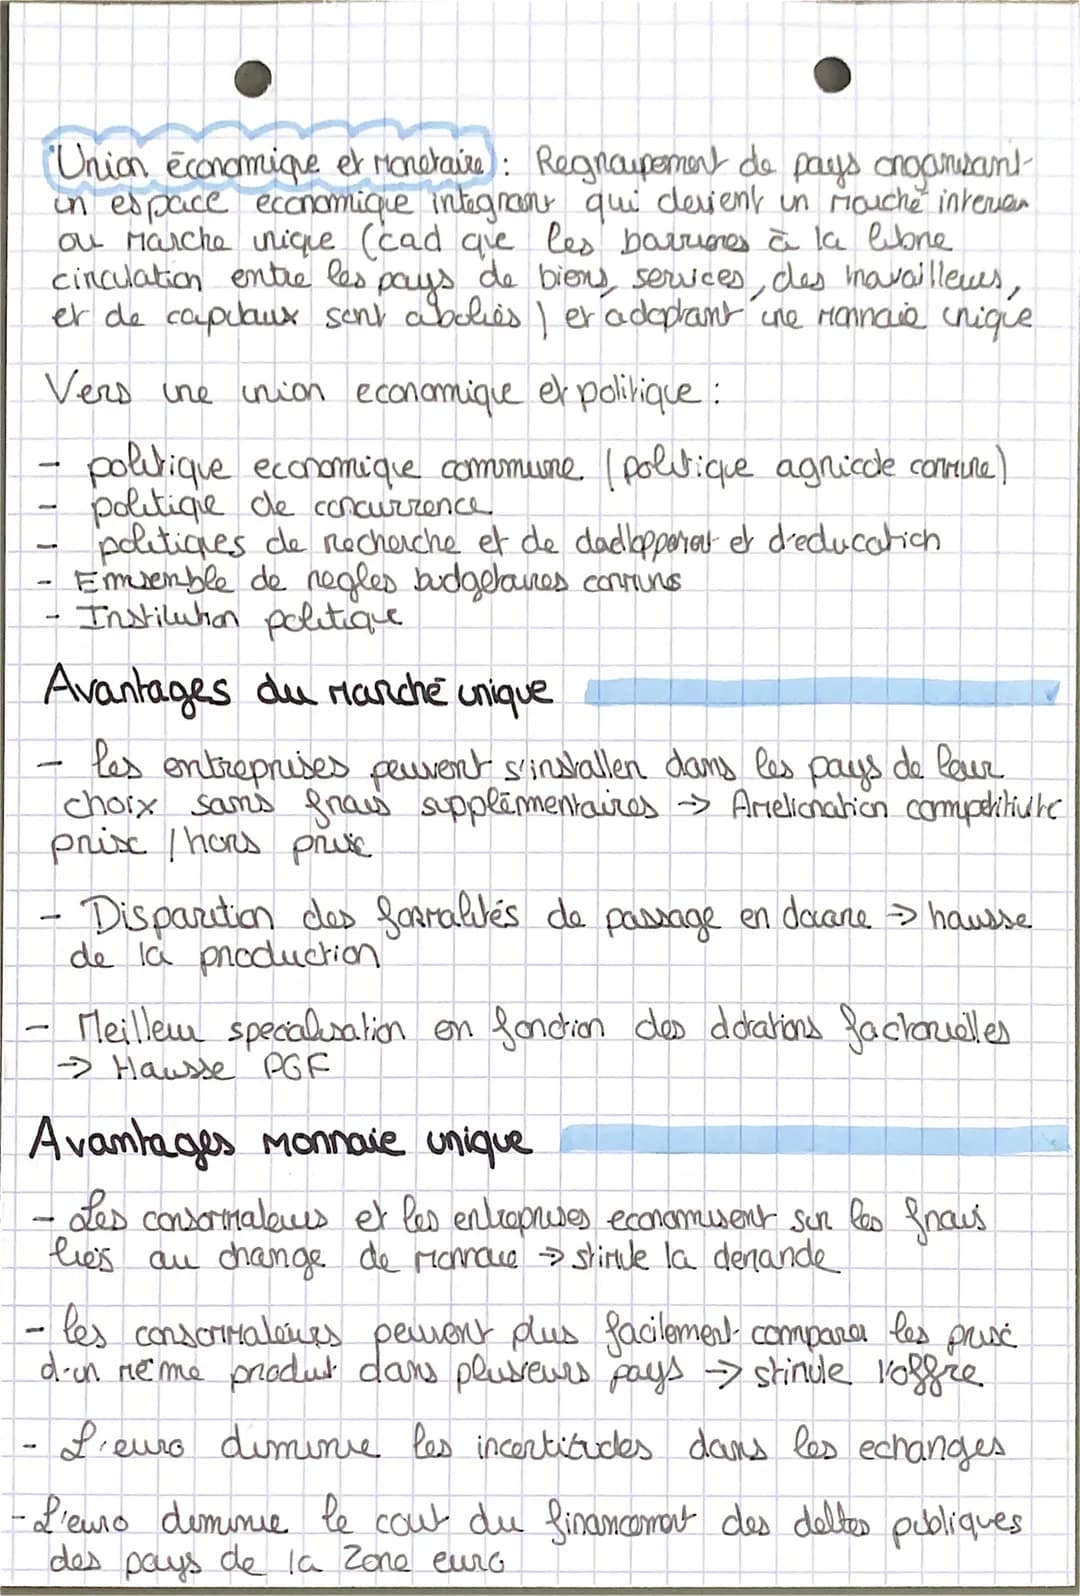 Union économique et Monetaire : Regroupement de pays organisant
un espace economique integrant qui devient un Marché interieur
ou Marche unique (cad que les barrieres à la libre
circulation entre les pays de biens, services, des travailleurs,
et de capitaux sont abolies) et adoptant une Monnaie unique
Vers une union economique et politique :
- politique economique commune (politique agricole commune)
- politique de concurrence
- politiques de recherche et de et d'education
- Emsemble de regles budgetaires communs
- Institution politique
Avantages du Marché unique
- les entreprises peuvent s'installer dans les pays de leur
choix sans frais supplémentaires → Amelioration compétitivité
prix / hors prix
- Disparition des formalités de passage en douane → hausse
de la production
- Meilleur specialisation en fonction des dotations factorielles
→ Hausse PGF
Avantages Monnaie unique
- Les consommateurs et les entreprises economisent sur les frais
liés au change de Monnaie → stimule la demande
- les consommateurs peuvent plus facilement comparer les prix
d'un même produit dans plusieurs pays → stimule l'offre
- L'euro diminue les incertitudes dans les echanges
- L'euro diminue le cout du financement des dettes publiques
des pays de la Zone euro